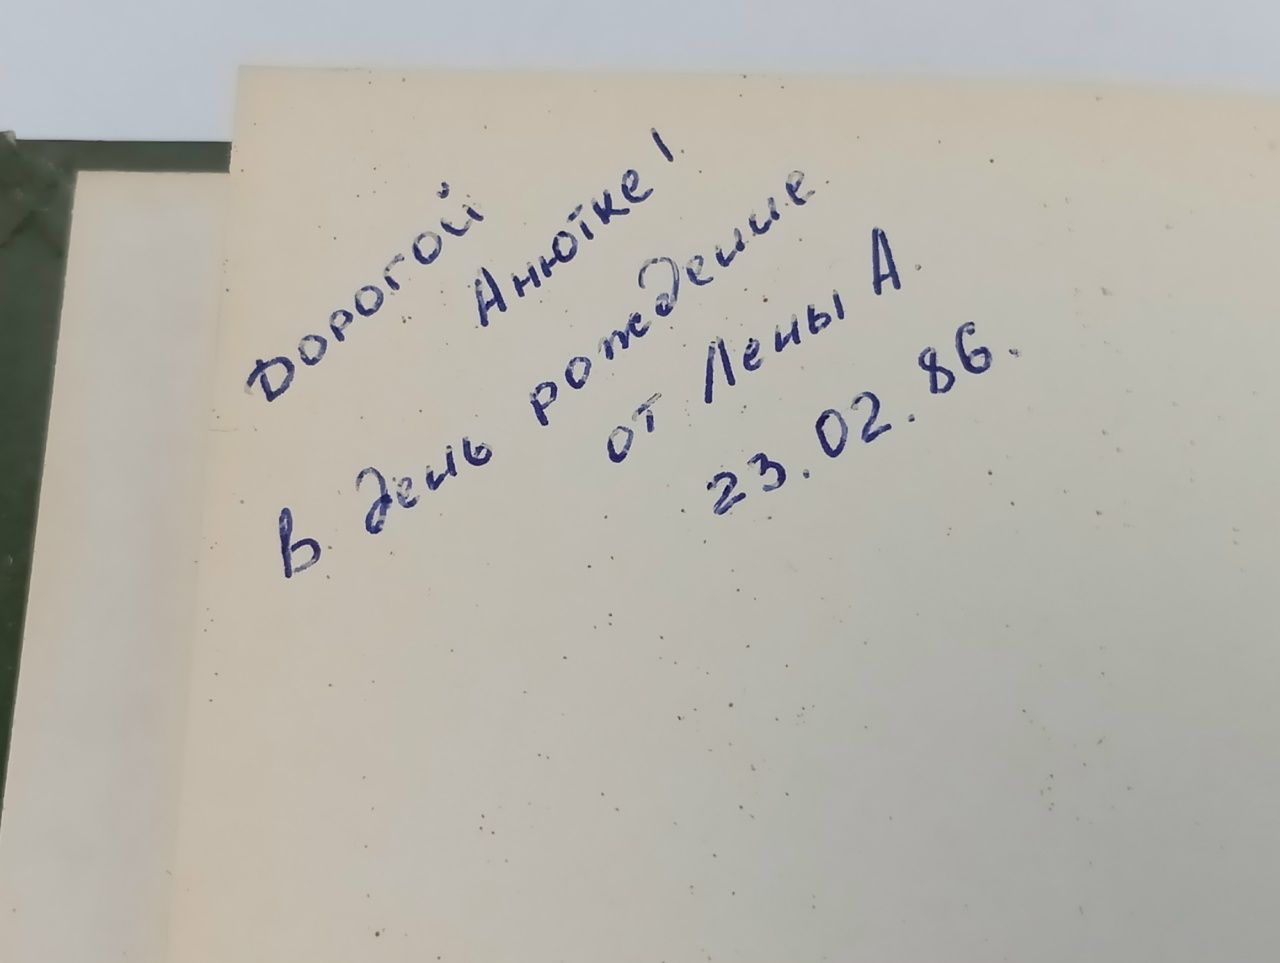 Дорогой
Анютке!
В день рождение
от Лены А.
23.02.86.